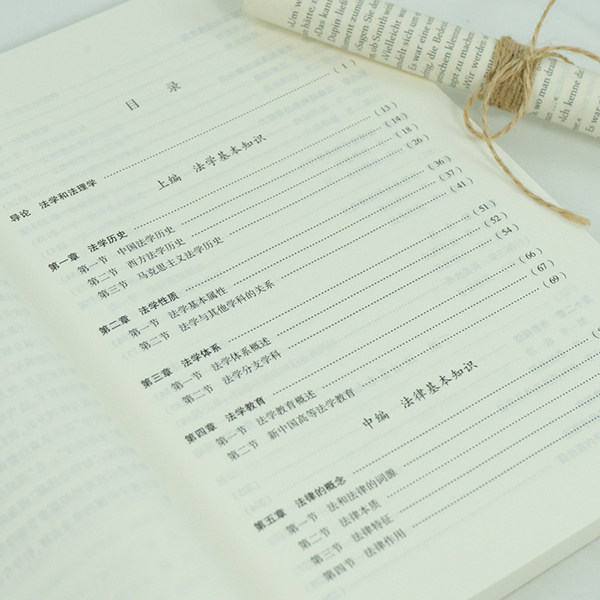 目 录
导论 法学和法理学 (1)
上编 法学基本知识
第一章 法学历史 (13)
第一节 中国法学历史 (14)
第二节 西方法学历史 (18)
第三节 马克思主义法学历史 (26)
第二章 法学性质 (36)
第一节 法学基本属性 (37)
第二节 法学与其他学科的关系 (41)
第三章 法学体系 (51)
第一节 法学体系概述 (52)
第二节 法学分支学科 (54)
第四章 法学教育 (66)
第一节 法学教育概述 (67)
第二节 新中国高等法学教育 (69)
中编 法律基本知识
第五章 法律的概念
第一节 法和法律的词源
第二节 法律本质
第三节 法律特征
第四节 法律作用
»Das kann
Dapin ließ
»Sagen Sie
ob Smith
»Vielleicht
Es war eine
Wir werden
wo man
ich kenne